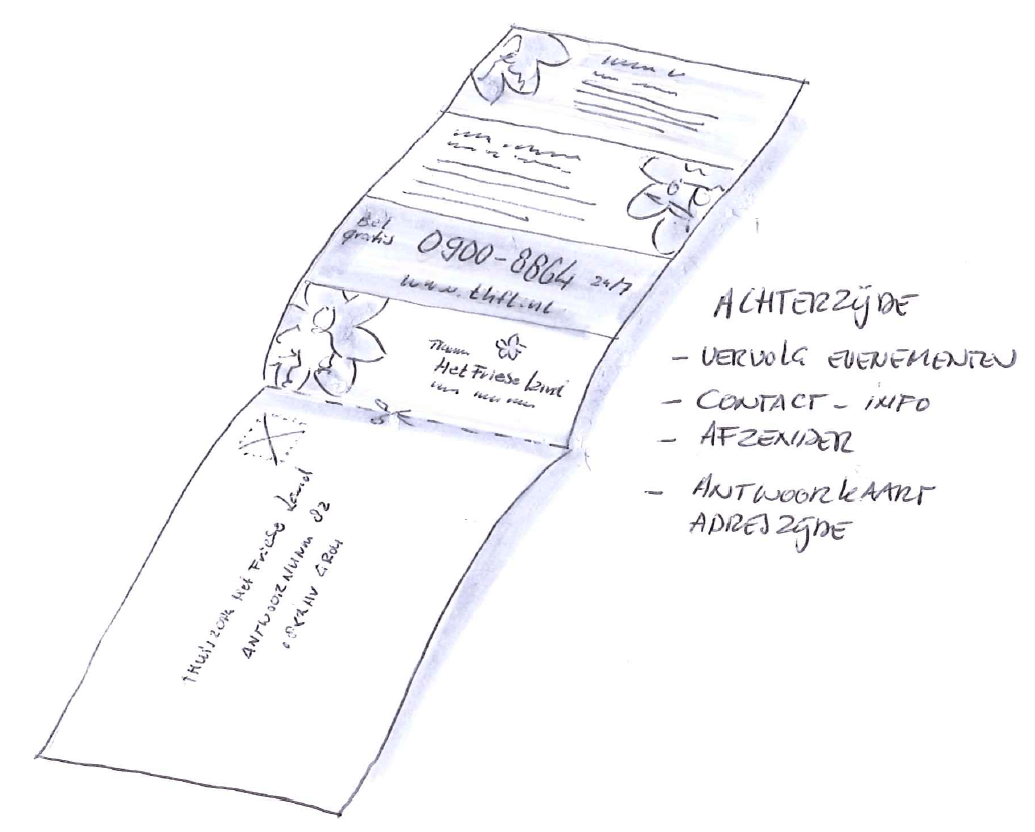 Bel
gratis
0900-8864 24/7
www.thfl.nl
Het Friese Land
THUISZORG Het Friese Land
ANTWOORDNUMM 82
GROU
ACHTERZIJDE
- VERVOLG EVENEMENTEN
- CONTACT - INFO
- AFZENDER
- ANTWOORKAART
ADRESZIJDE